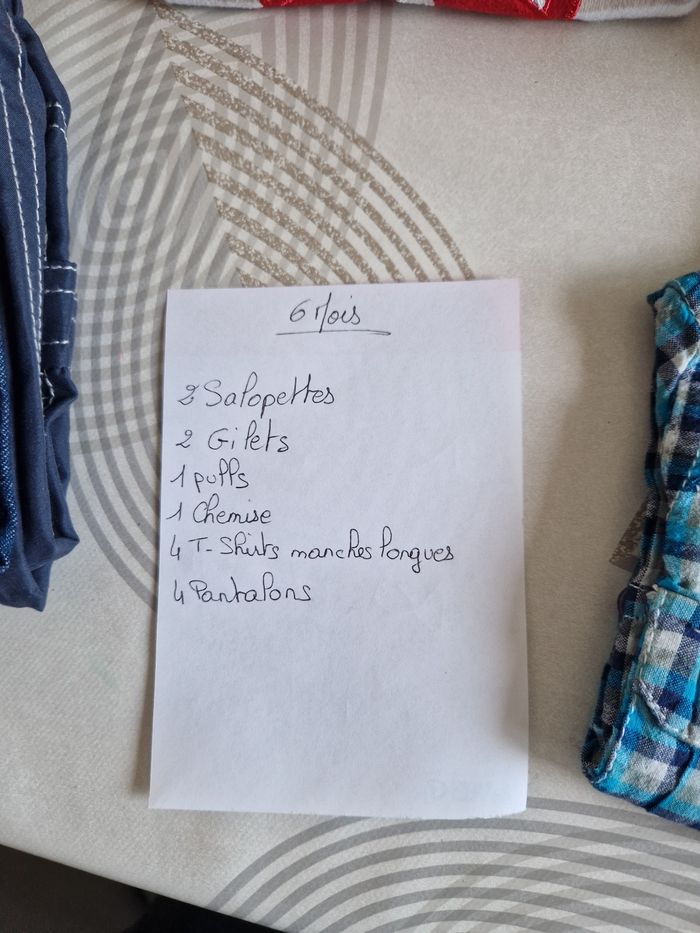 6 Mois
2 Salopettes
2 Gilets
1 pulls
1 Chemise
4 T-Shirts manches longues
4 Pantalons